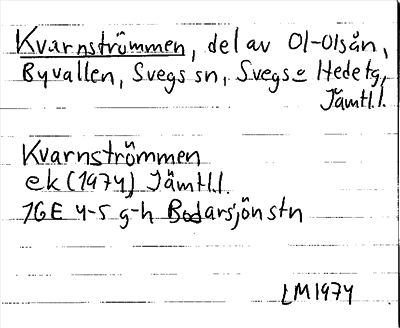 Kvarnströmmen, del av Ol-Olsån,
Byvallen, Svegs sn, Svegs o Hede tg,
Jämtl.l.
Kvarnströmmen
ek (1974) Jämtl.l.
16E 4-5 g-h Bodarsjön stn
LM1974